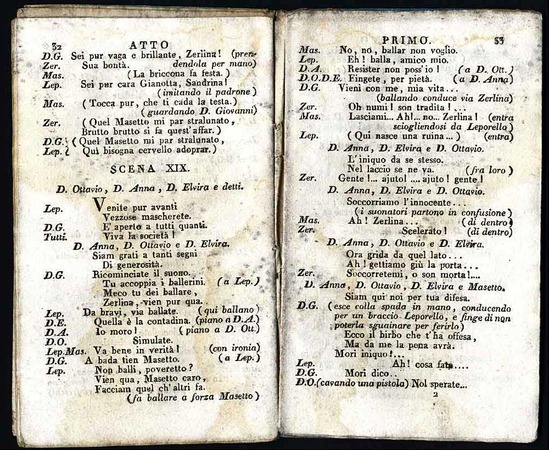 32 ATTO
D.G. Sei pur vaga e brillante, Zerlina! (pren-
Zer. Sua bontà. dendola per mano)
Mas. (La briccona fa festa.)
Lep. Sei pur cara Gianotta, Sandrina!
(imitando il padrone)
Mas. (Tocca pur, che ti cada la testa.)
(guardando D. Giovanni)
Zer. (Quel Masetto mi par stralunato,
Brutto brutto si fa quest'affar.)
D.G. (Quel Masetto mi par stralunato,
Lep. Quì bisogna cervello adoprar.)
SCENA XIX.
D. Ottavio, D. Anna, D. Elvira e detti.
Lep. Venite pur avanti
Vezzose mascherete.
D.G. E' aperto a tutti quanti.
Tutti. Viva la società!
D. Anna, D. Ottavio e D. Elvira.
Siam grati a tanti segni
Di generosità.
D.G. Ricominciate il suono.
Tu accoppia i ballerini. (a Lep.)
Meco tu dei ballare,
Zerlina, vien pur qua.
Lep. Da bravi, via ballate. (qui ballano)
D.E. Quella è la contadina. (piano a D.A.)
D.A. Io moro! (piano a D. Ott.)
D.O. Simulate.
Lep.Mas. Va bene in verità! (con ironia)
D.G. A bada tien Masetto. (a Lep.)
Lep. Non balli, poveretto?
Vien qua, Masetto caro,
Facciam quel ch'altri fa.
(fa ballare a forza Masetto)
PRIMO. 33
Mas. No, no, ballar non voglio.
Lep. Eh! balla, amico mio.
D.A. Resister non poss'io! (a D. Ott.)
D.O.D.E. Fingete, per pietà. (a D. Anna)
D.G. Vieni con me, mia vita...
(ballando conduce via Zerlina)
Zer. Oh numi! son tradita!...
Mas. Lasciami... Ah!... no... Zerlina! (entra
sciogliendosi da Leporello)
Lep. (Qui nasce una ruina...) (entra)
D. Anna, D. Elvira e D. Ottavio.
L'iniquo da se stesso.
Nel laccio se ne va. (fra loro)
Zer. Gente!... ajuto!.... ajuto! gente!
D. Anna, D. Elvira e D. Ottavio.
Soccorriamo l'innocente...
(i suonatori partono in confusione)
Mas. Ah! Zerlina... (di dentro)
Zer. Scelerato! (di dentro)
D. Anna, D. Ottavio e D. Elvira.
Ora grida da quel lato...
Ah! gettiamo giù la porta...
Zer. Soccorretemi, o son morta!...
D. Anna, D. Ottavio, D. Elvira e Masetto.
Siam qui noi per tua difesa.
D.G. (esce colla spada in mano, conducendo
per un braccio Leporello, e finge di non
poterla sguainare per ferirlo)
Ecco il birbo che t'ha offesa,
Ma da me la pena avrà.
Mori iniquo!...
Lep. Ah! cosa fate....
D.G. Mori dico..
D.O. (cavando una pistola) Nol sperate...
2